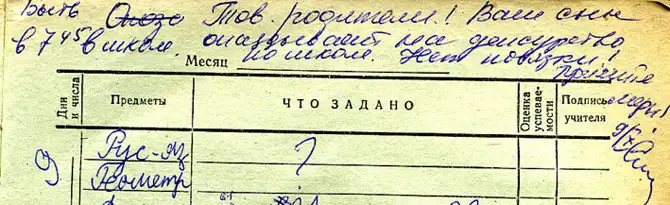 Быть Тов. родители! Ваш сын
в 7 45 в школе. опаздывает на дежурство
по школе. Нет повязки!
Примите
меры!
Месяц
Дни и числа
Предметы
ЧТО ЗАДАНО
Оценка успеваемости
Подпись учителя
9 Рус-яз
Геометр